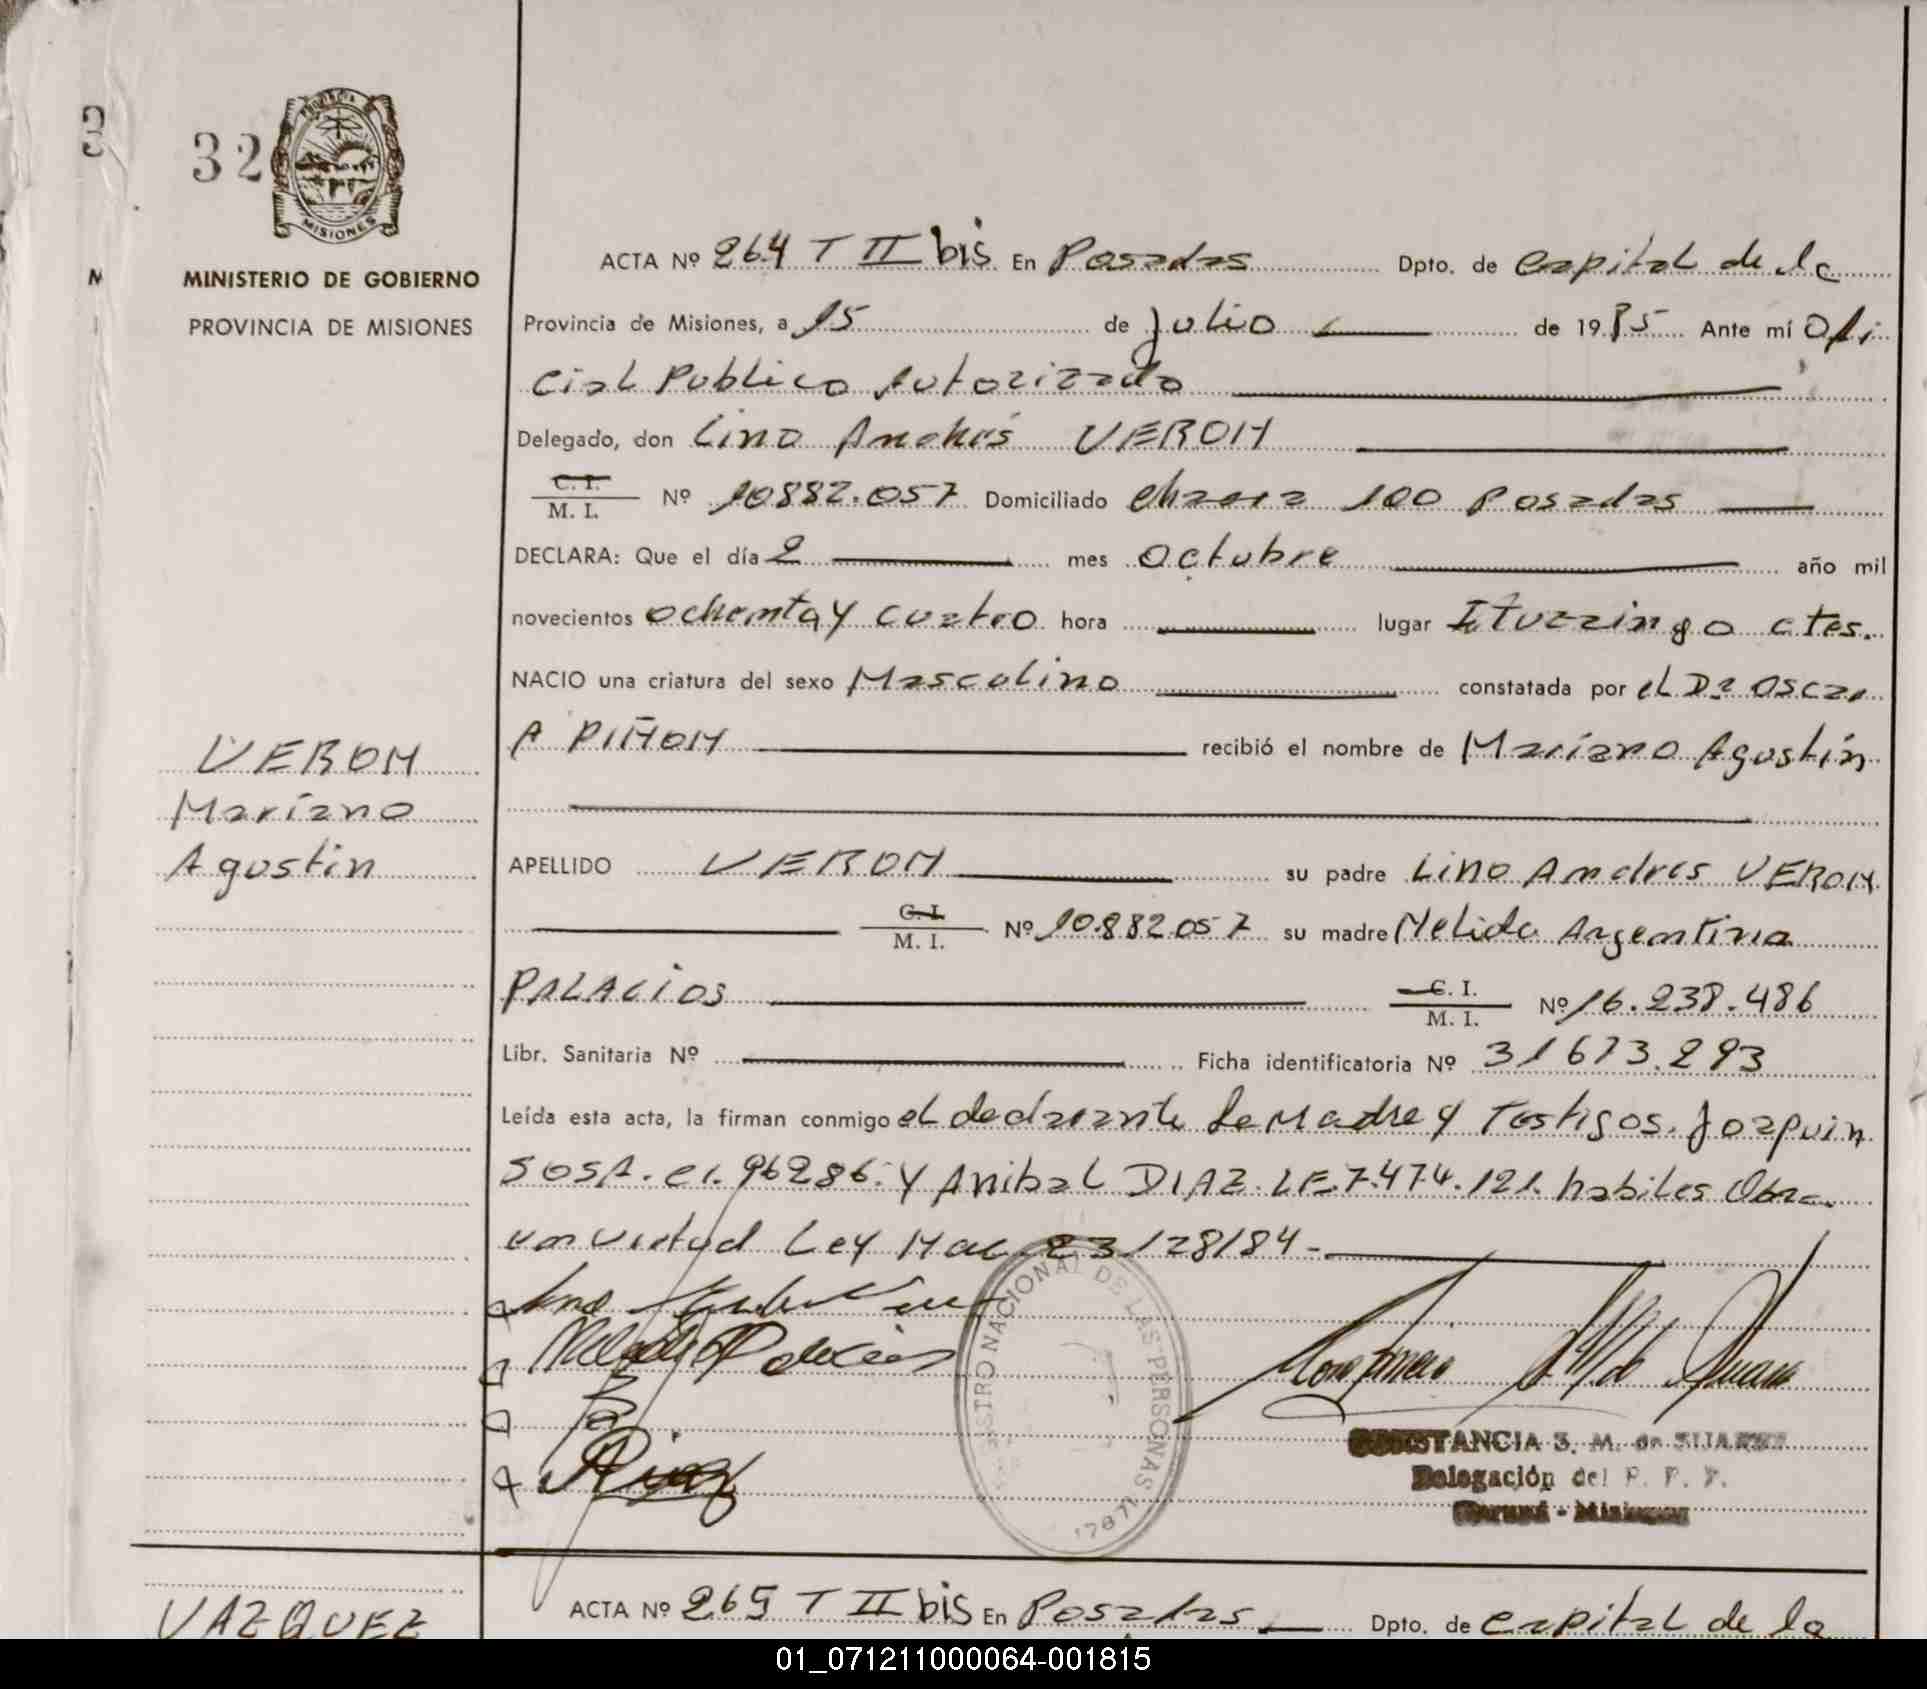 32
PROVINCIA DE
MISIONES
MINISTERIO DE GOBIERNO
PROVINCIA DE MISIONES
ACTA Nº 264 T II bis En Posadas Dpto. de capital de la
Provincia de Misiones, a 15 de julio de 1985 Ante mí Ofi
cial Publico Autorizado
Delegado, don Lino Andrés VERON
C. I.
M. I. Nº 10882.057 Domiciliado chacra 100 Posadas
DECLARA: Que el día 2 mes octubre año mil
novecientos ochenta y cuatro hora lugar Ituzzingo ctes.
NACIO una criatura del sexo Masculino constatada por el Dr Oscar
A PIÑON recibió el nombre de Mariano Agustín
VERON
Mariano
Agustin
APELLIDO VERON su padre Lino Andres VERON
C. I.
M. I. Nº 10.882.057 su madre Nelida Argentina
PALACIOS C. I.
M. I. Nº 16.238.486
Libr. Sanitaria Nº Ficha identificatoria Nº 31673.293
Leída esta acta, la firman conmigo el declarante La Madre y Testigos. Joaquin
SOSA. CI. 96286. Y Anibal DIAZ LE.7.474.121. habiles Obra
en virtud Ley Nac 23128/84-
REGISTRO NACIONAL DE LAS PERSONAS
CONSTANCIA S. M. de SUAREZ
Delegación del R. P. P.
Garupá - Misiones
ACTA Nº 265 T II bis En Posadas Dpto. de capital de la
VAZQUEZ
01_071211000064-001815